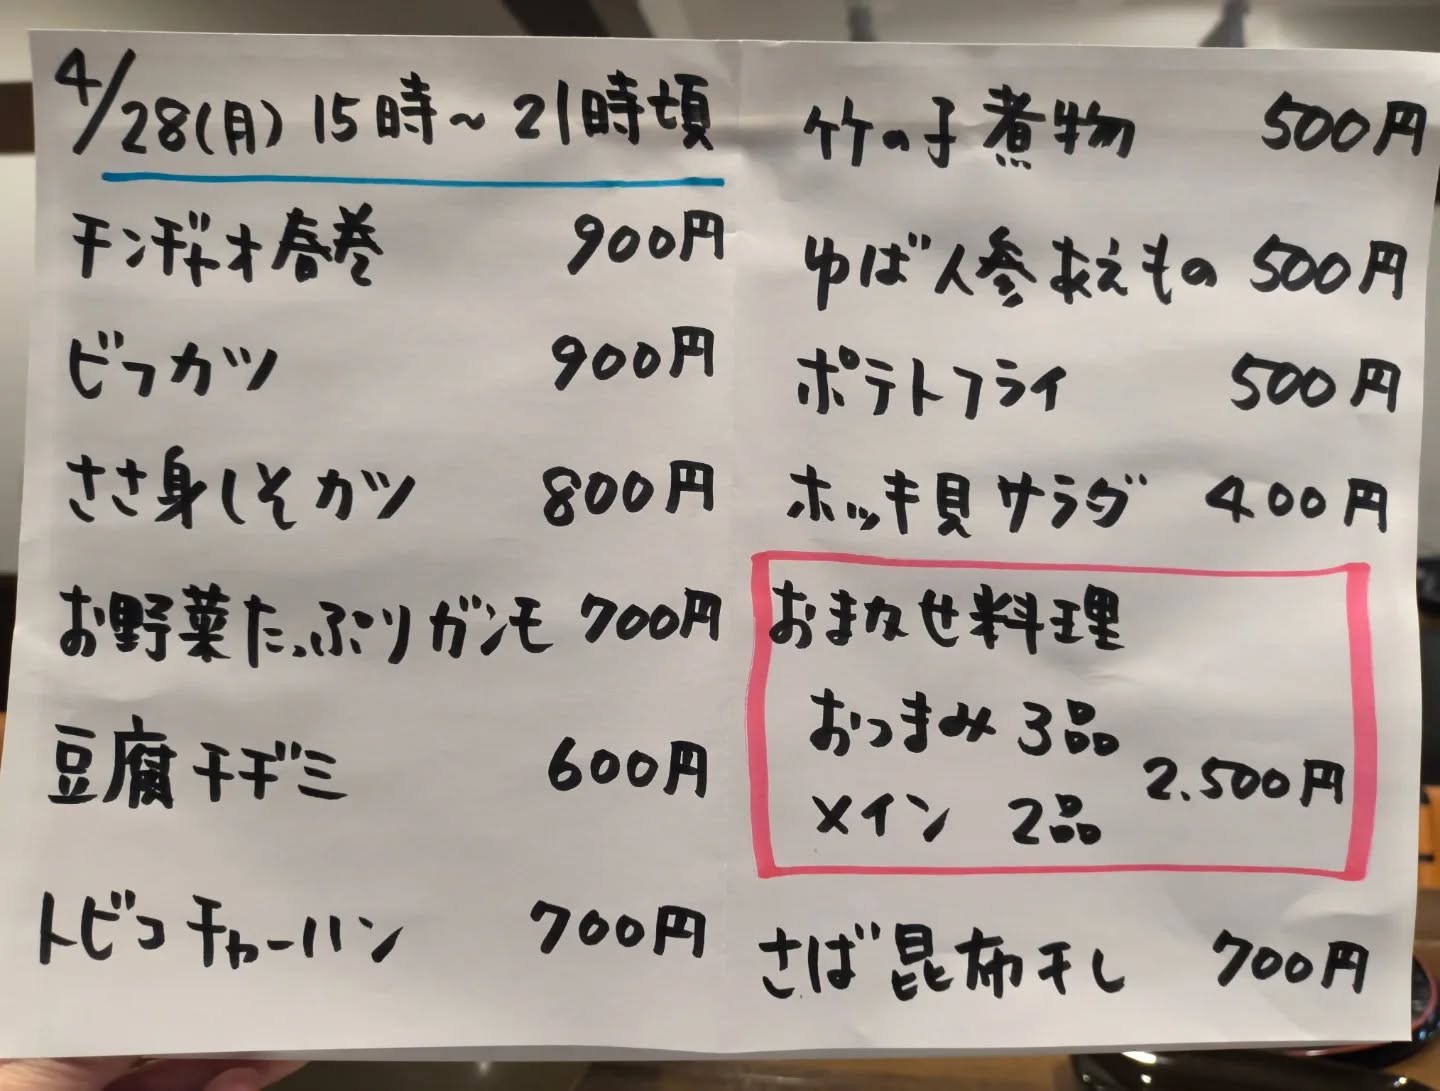 4/28(月) 15時~21時頃
チンヂャオ春巻 900円
ビフカツ 900円
ささ身しそカツ 800円
お野菜たっぷりガンモ 700円
豆腐チヂミ 600円
トビコチャーハン 700円
竹の子煮物 500円
ゆば人参あえもの 500円
ポテトフライ 500円
ホッキ貝サラダ 400円
おまかせ料理
おつまみ 3品
メイン 2品
2.500円
さば昆布干し 700円